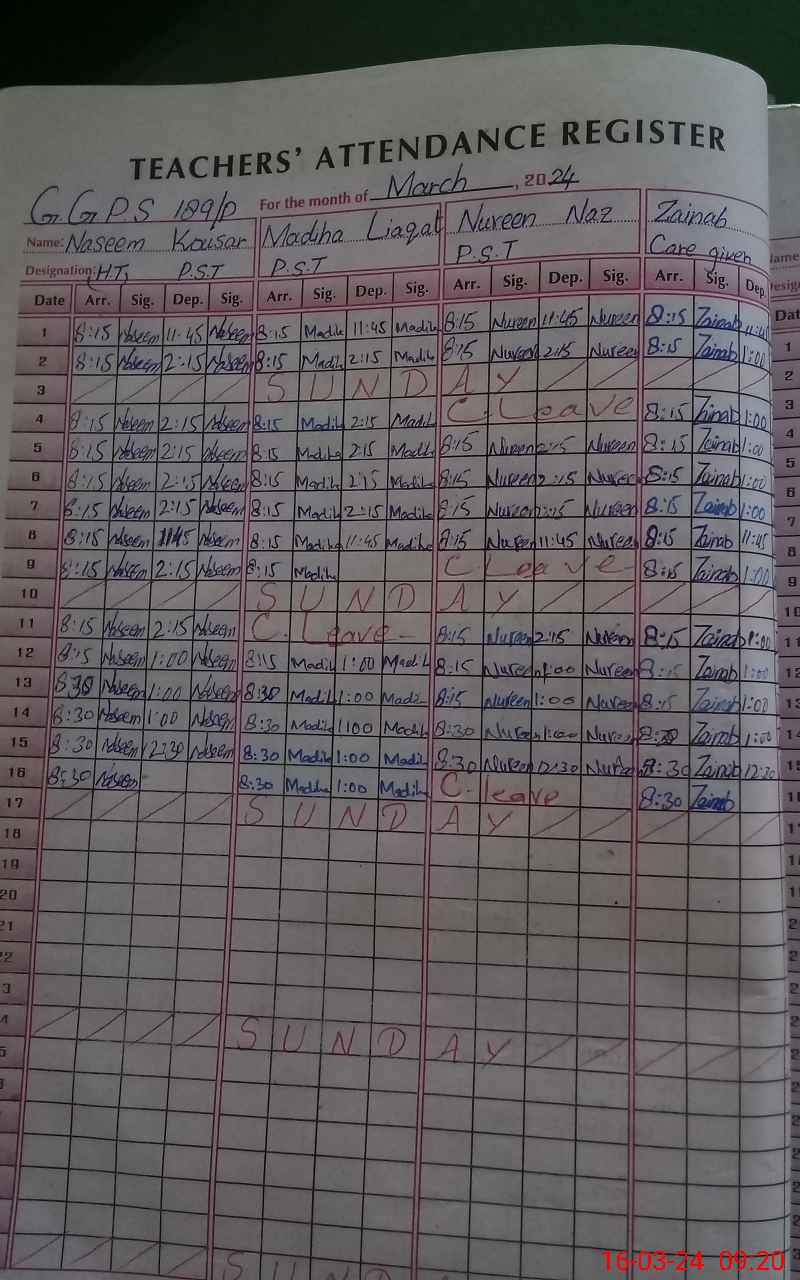 TEACHERS' ATTENDANCE REGISTER
G.G.P.S 189/P For the month of March, 2024
Name: Naseem Kousar Madiha Liaqat Nureen Naz Zainab
Designation: HT, P.S.T P.S.T P.S.T Care given
Date Arr. Sig. Dep. Sig. Arr. Sig. Dep. Sig. Arr. Sig. Dep. Sig. Arr. Sig. Dep.
1 8:15 Naseem 11:45 Naseem 8:15 Madih 11:45 Madih 8:15 Nureen 11:45 Nureen 8:15 Zainab 11:45
2 8:15 Naseem 2:15 Naseem 8:15 Madih 2:15 Madih 8:15 Nureen 2:15 Nureen 8:15 Zainab 1:00
3 S U N D A Y
4 8:15 Naseem 2:15 Naseem 8:15 Madih 2:15 Madih C. Leave 8:15 Zainab 1:00
5 8:15 Naseem 2:15 Naseem 8:15 Madiha 2:15 Madih 8:15 Nureen 2:15 Nureen 8:15 Zainab 1:00
6 8:15 Naseem 2:15 Naseem 8:15 Madiha 2:15 Madih 8:15 Nureen 2:15 Nureen 8:15 Zainab 1:00
7 8:15 Naseem 2:15 Naseem 8:15 Madih 2:15 Madiha 8:15 Nureen 2:15 Nureen 8:15 Zainab 1:00
8 8:15 Naseem 1145 Naseem 8:15 Madiha 11:45 Madiha 8:15 Nureen 11:45 Nureen 8:15 Zainab 11:45
9 8:15 Naseem 2:15 Naseem 8:15 Madiha C Leave 8:15 Zainab 1:00
10 S U N D A Y
11 8:15 Naseem 2:15 Naseem C. Leave - 8:15 Nureen 2:15 Nureen 8:15 Zainab 1:00
12 8:15 Naseem 1:00 Naseem 8:15 Madih 1:00 Madih 8:15 Nureen 1:00 Nureen 8:15 Zainab 1:00
13 8:30 Naseem 1:00 Naseem 8:30 Madih 1:00 Madih 8:15 Nureen 1:00 Nureen 8:15 Zainab 1:00
14 8:30 Naseem 1:00 Naseem 8:30 Madih 1:00 Madih 8:30 Nureen 1:00 Nureen 8:30 Zainab 1:00
15 8:30 Naseem 12:30 Naseem 8:30 Madih 1:00 Madih 8:30 Nureen 12:30 Nureen 8:30 Zainab 12:30
16 8:30 Naseem 8:30 Madiha 1:00 Madiha C. leave 8:30 Zainab
17 S U N D A Y
18
19
20
21
22
3
4 S U N D A Y
5
S U N D
16-03-24 09:20